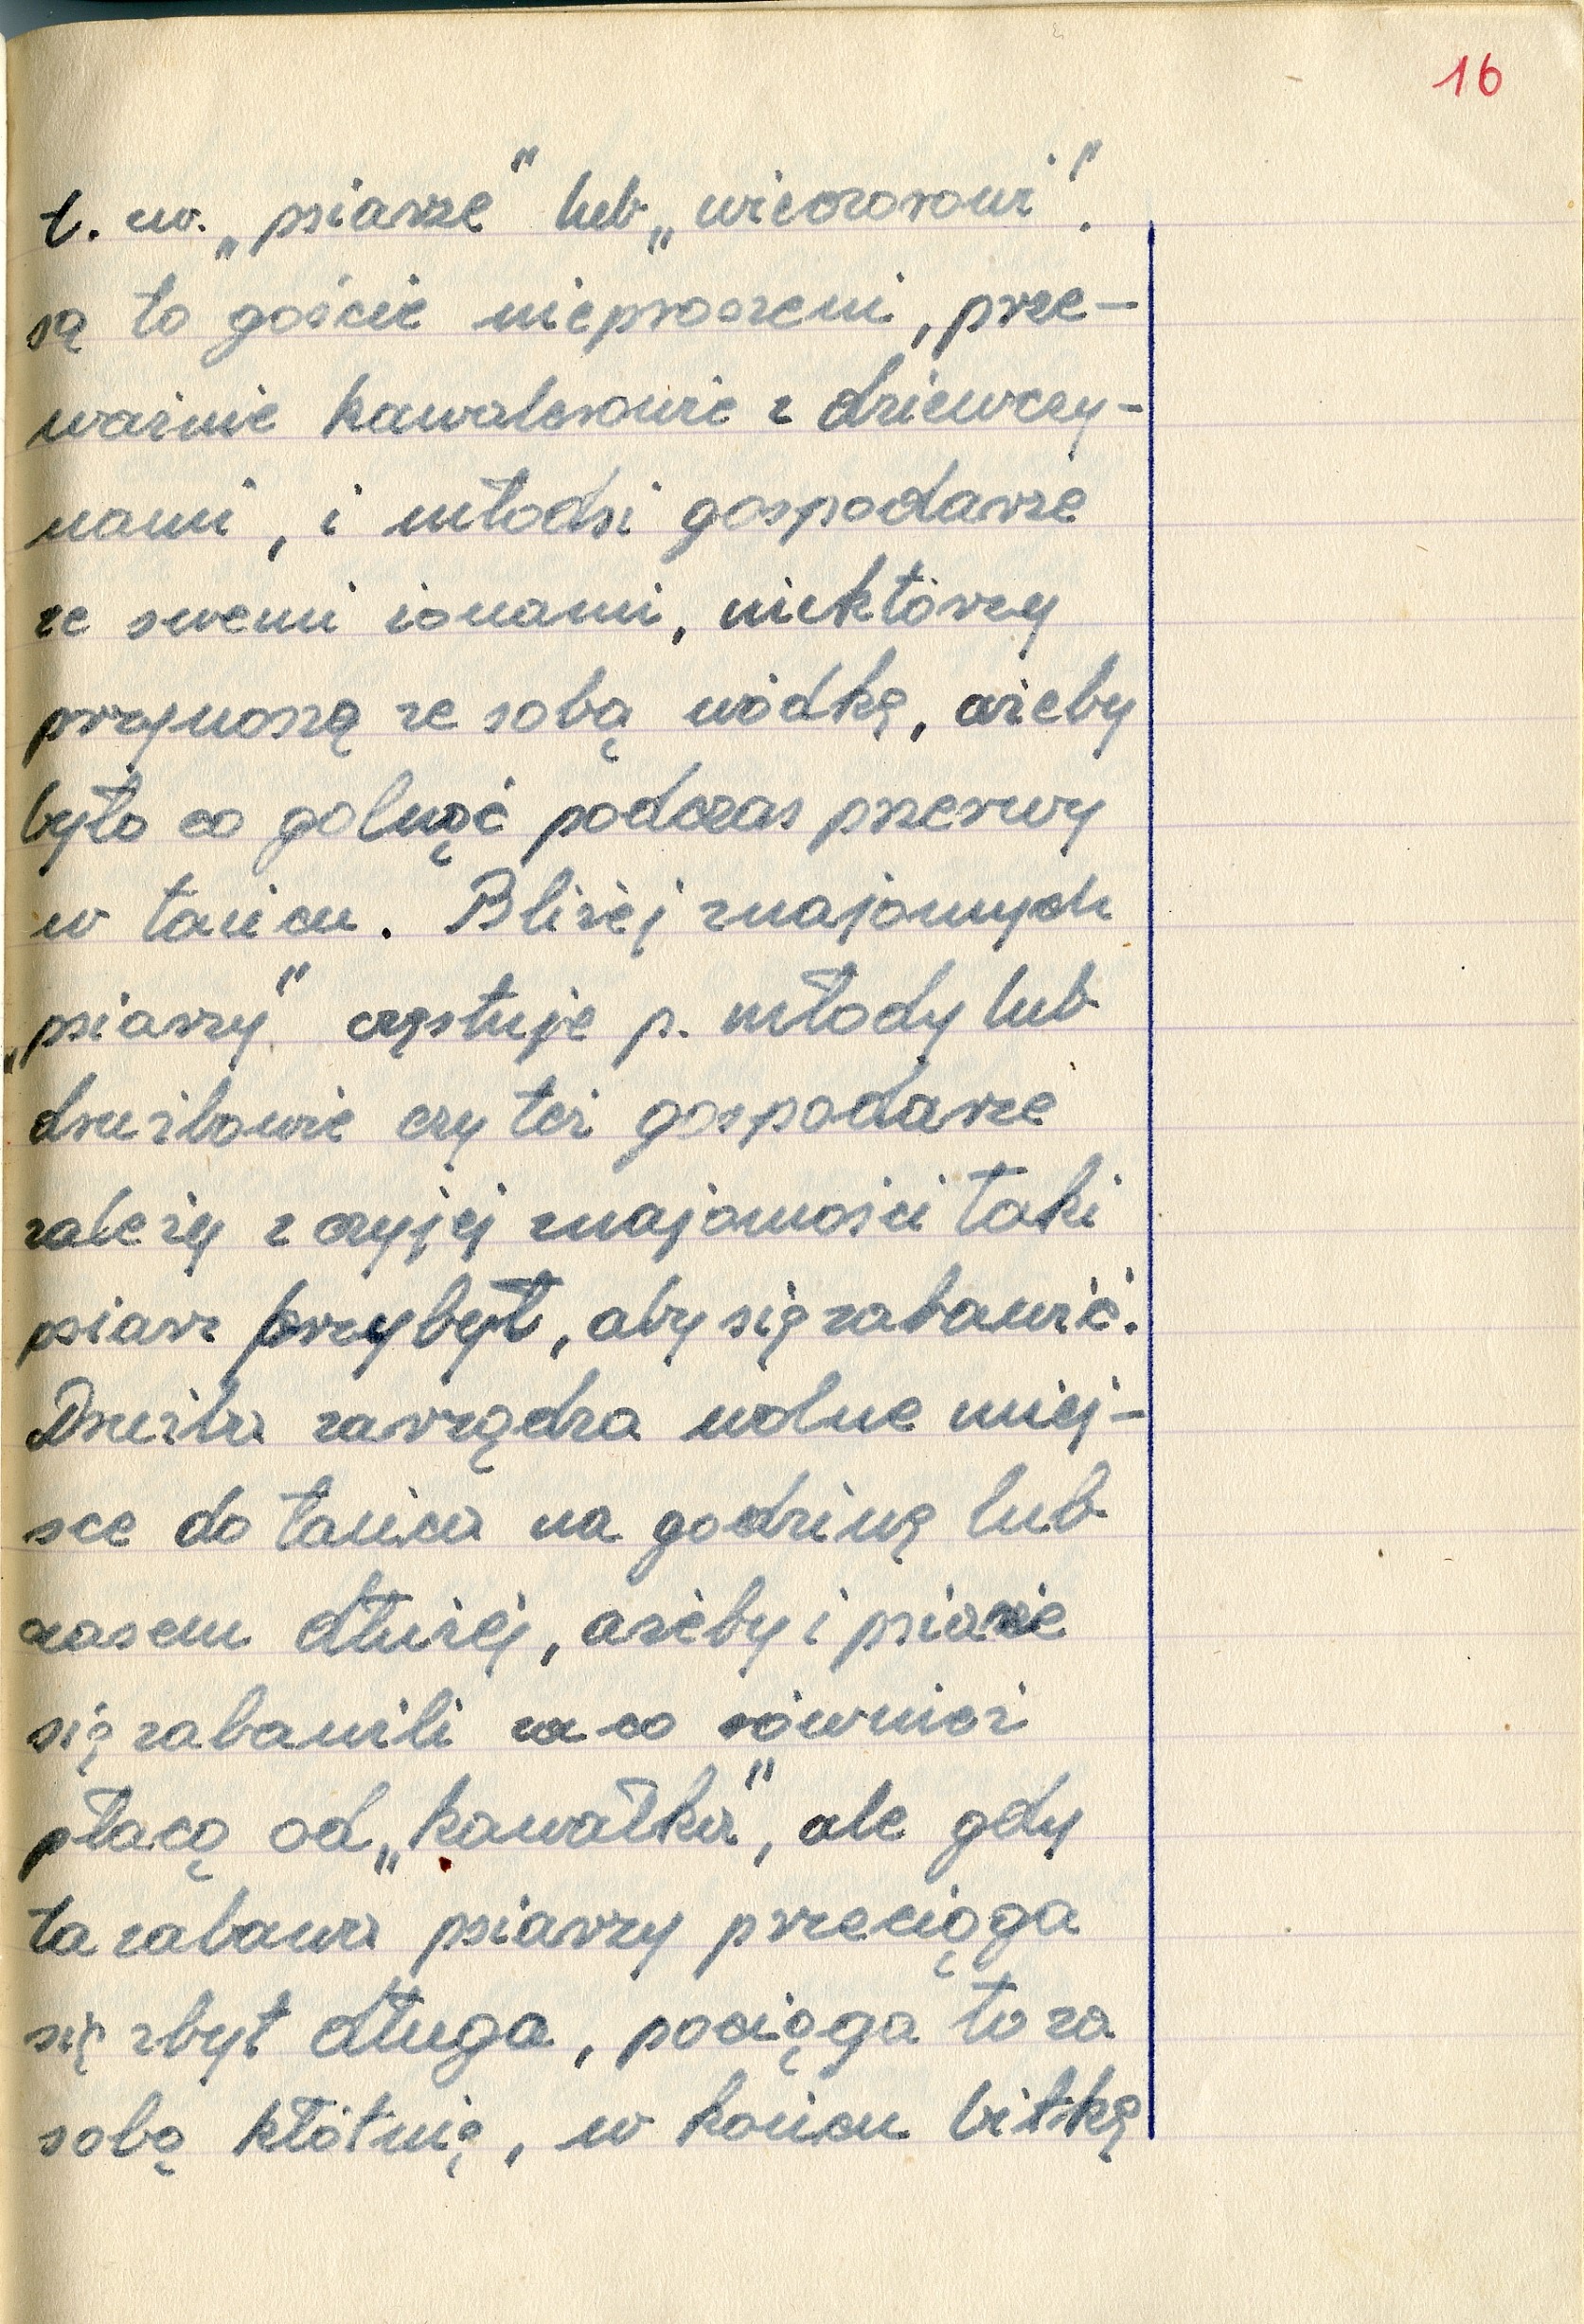 16
t. zw. „psiarze" lub „wieczorowi".
są to goście nieproszeni, prze-
ważnie kawalerowie z dziewczy-
nami, i młodsi gospodarze
ze swemi żonami, niektórzy
przynoszą ze sobą wódkę, ażeby
było co golnąć podczas przerwy
w tańcu. Bliżej znajomych
„psiarzy" częstuje p. młody lub
drużbowie czy też gospodarze
zależy z czyjej znajomości taki
psiarz przybył, aby się zabawić.
Drużba zarządza wolne miej-
sce do tańca na godzinę lub
czasem dłużej, ażeby i psiarze
się zabawili za co również
płacą od „kawałka", ale gdy
ta zabawa psiarzy przeciąga
się zbyt długa, pociąga to za
sobą kłótnię, w końcu bitkę